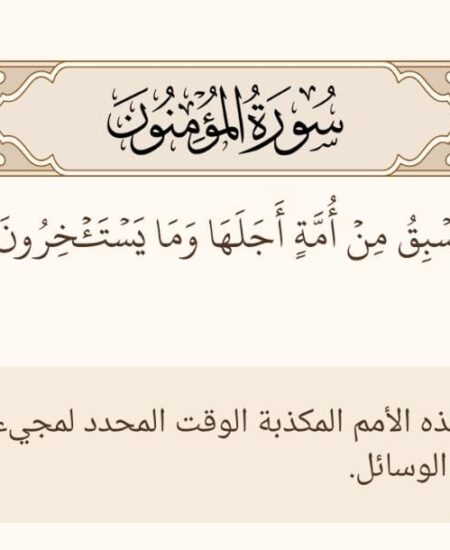 سُورَةُ المُؤْمِنُونَ
سۡبِقُ مِنۡ أُمَّةٍ أَجَلَهَا وَمَا يَسۡتَـٔۡخِرُونَ
ذه الأمم المكذبة الوقت المحدد لمجيء
الوسائل.